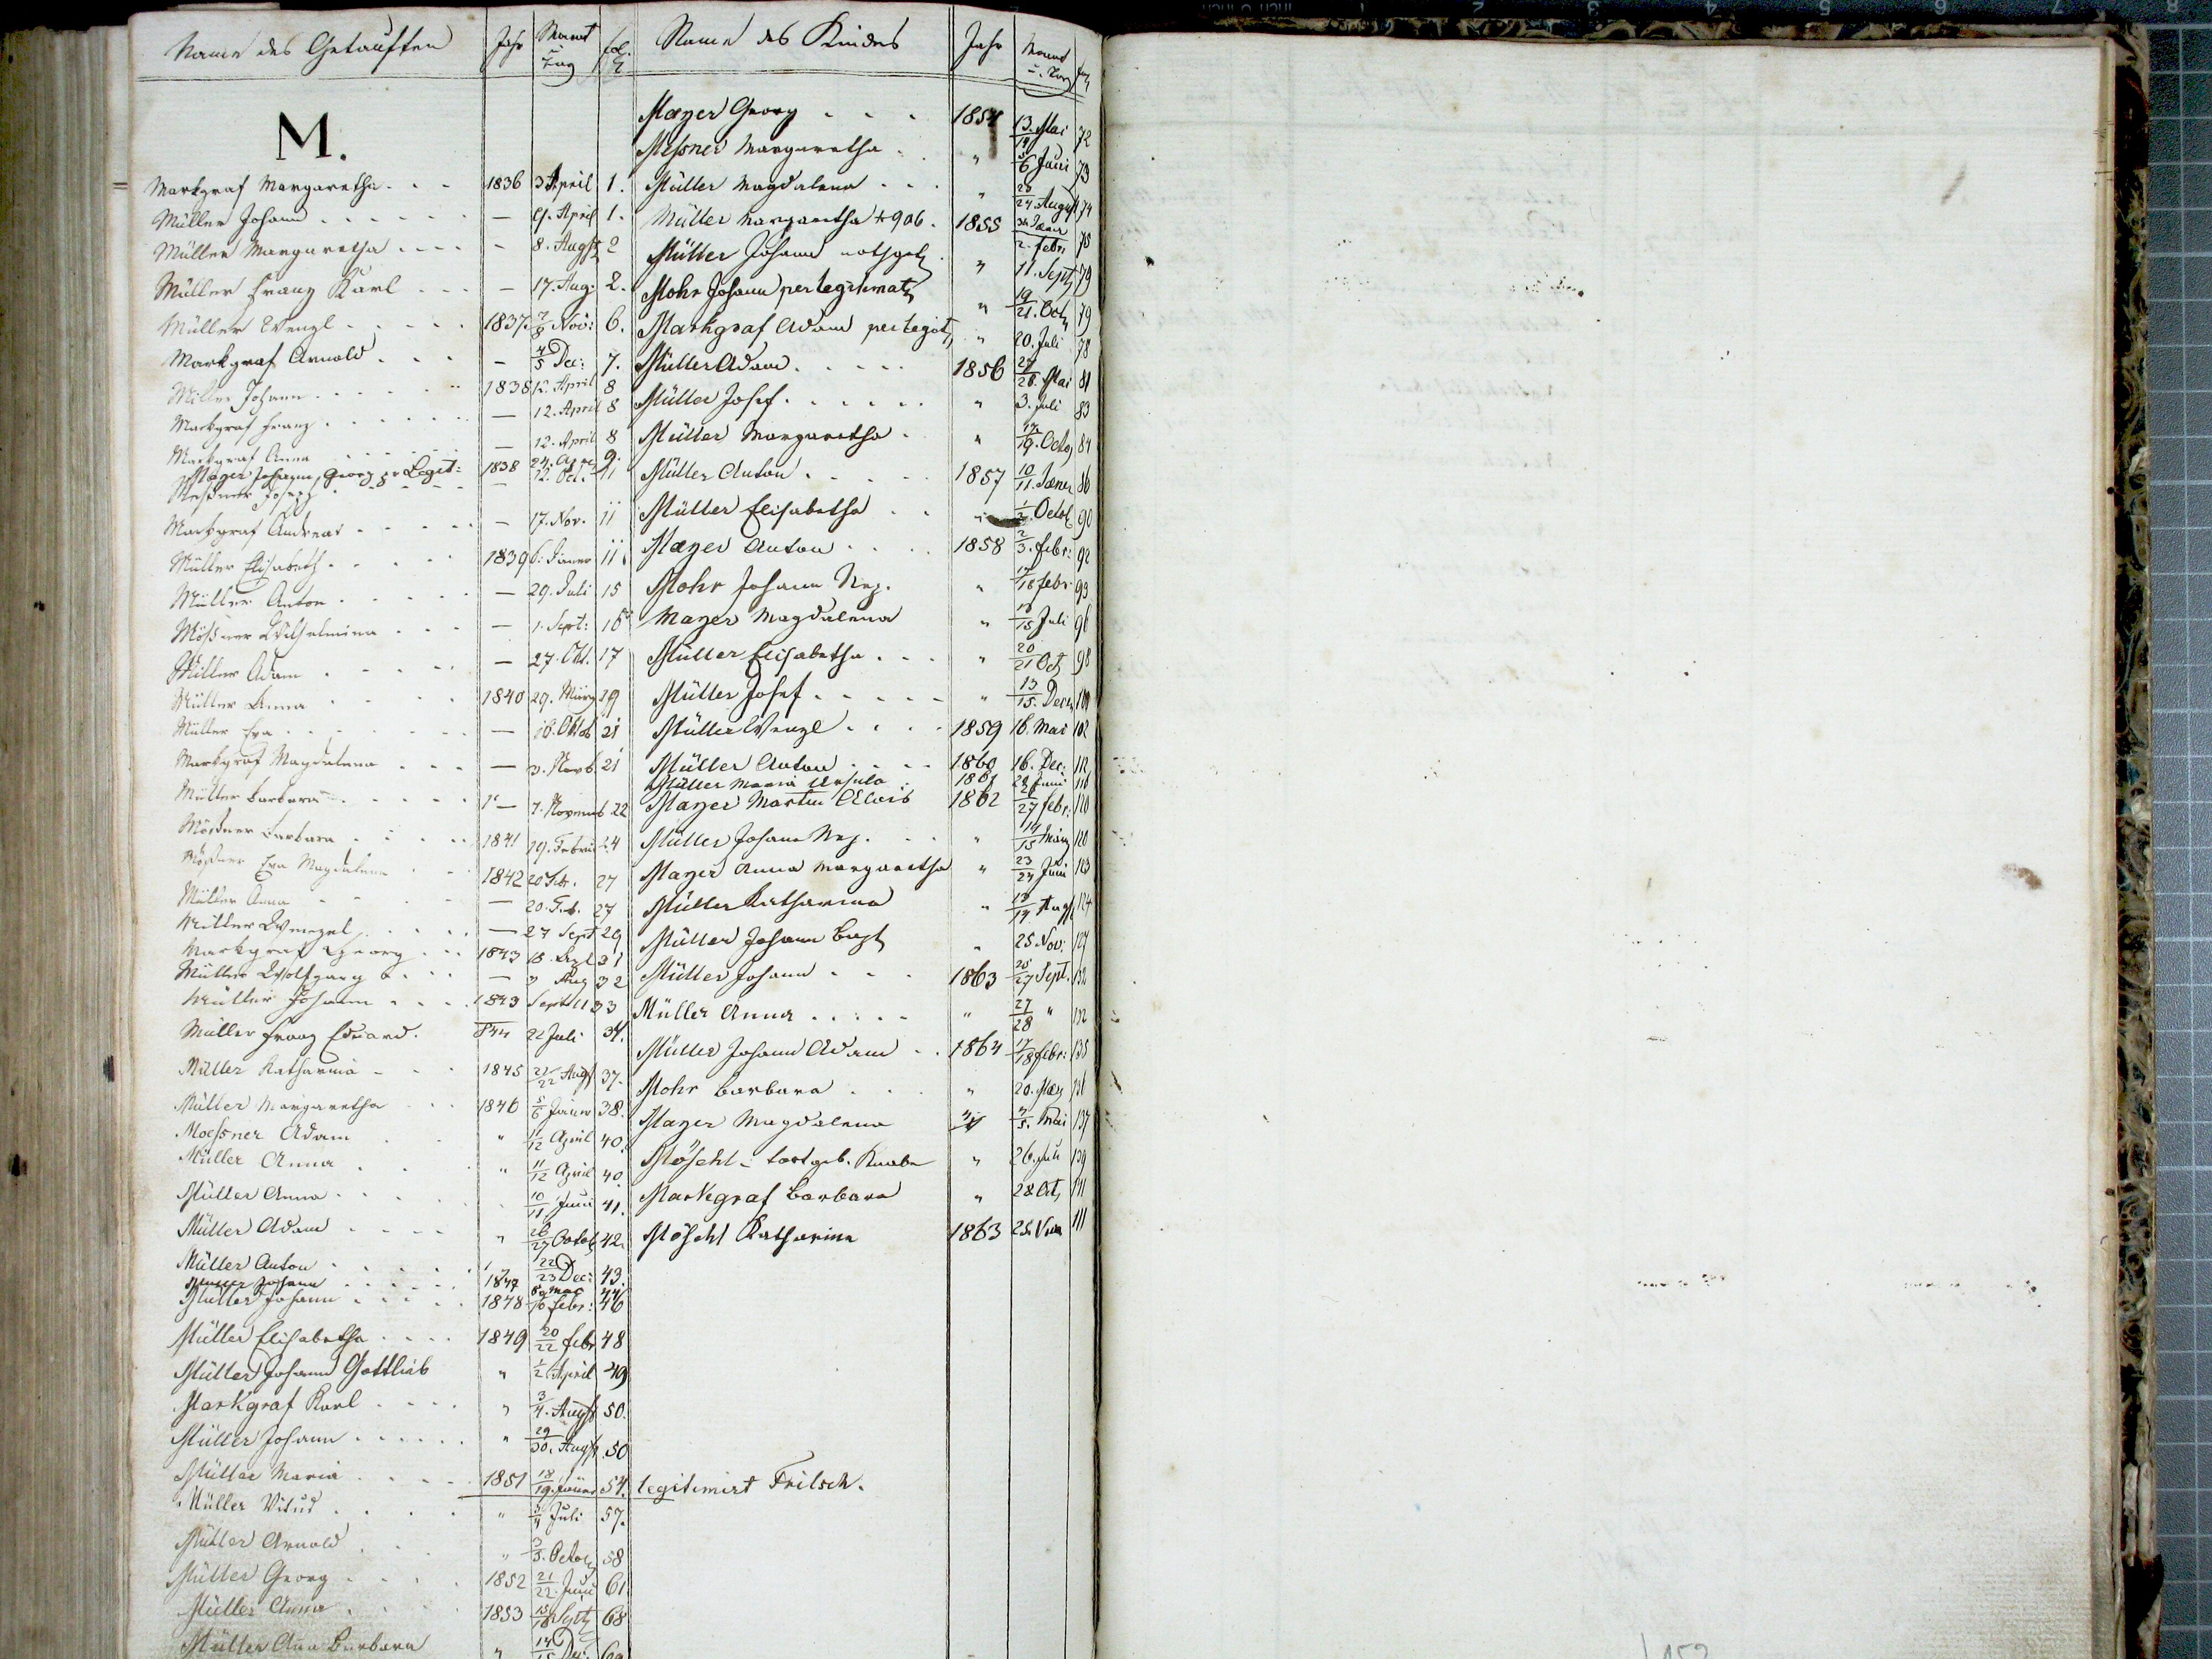 Name des Getauften Jahr Monat u. Tag fol.
M.
Markgraf Margaretha 1836 3 April 1.
Müller Johann — 9. April 1.
Müller Margaretha — 8. Augst 2
Müller Franz Karl — 17. Aug. 2.
Müller Wenzl 1837 7/8 Nov: 6.
Markgraf Arnold — 4/5 Dec: 7.
Müller Johann 1838 12. April 8
Markgraf Franz — 12. April 8
Markgraf Anna — 12. April 8
Mayer Johann Georg pr Legit: 1838 9.
Meßner Joseph — 12. Oct. 11
Markgraf Andreas — 17. Nov. 11
Müller Elisabeth 1839 6. Jäner 11.
Müller Anton — 29. Juli 15
Mößner Wilhelmina — 1. Sept: 16
Müller Adam — 27. Okt. 17
Müller Anna 1840 29. März 19
Müller Eva — 16. Oktob 21
Markgraf Magdalena — 3. Novb. 21
Müller Barbara — 7. Novemb 22
Mößner Barbara 1841 19. Februar 24
Mößner Eva Magdalena 1842 20 Feb. 27
Müller Anna — 20. Feb. 27
Müller Wenzel — 27 Sept 29
Markgraf Georg 1843 18. 31
Müller Wolfgang — 3 Aug 32
Müller Johann 1843 Sept 11 33
Müller Franz Eduard. 844 22 Juli 34.
Müller Katharina 1845 21/22 Augst 37.
Müller Margaretha 1846 5/6 Jäner 38.
Moessner Adam " 11/12 April 40.
Müller Anna " 11/12 April 40
Müller Anna 10/11 Juni 41.
Müller Adam " 26/27 Octob 42.
Müller Anton " 22/23 Dec: 43.
Müller Johann 1847 Mai 44
Müller Johann 1848 febr: 46
Müller Elisabetha 1849 20/22 febr 48
Müller Johann Gottlieb " 1/2 April 49
Markgraf Karl " 3/4. Augst 50.
Müller Johann " 29/30. Augst 50
Müller Maria 1851 18/19. Jäner 54. legitimirt Fritsch.
Müller Vitus " 3/4 Juli 57.
Müller Arnold " 3/5. Octob 58
Müller Georg 1852 21/22. Juni 61.
Müller Anna 1853 15/18 Septb 68
Müller Ana Barbara " 14/15 Dec: 69
Name des Kindes Jahr Monat u. Tag fol
Mayer Georg 1854 13./14 Mai 72
Messner Margaretha " 5/6 Juni 73
Müller Magdalena " 23/24 August 74
Müller Margaretha + 906. 1855 31 Jäner/2. febr. 75
Müller Johann nothget. " 11. Sept 79
Mohr Johann per legitimat " 19/21. Oct 79
Markgraf Adam per legit " 20. Juli 78
Müller Adam 1856 27/28. Mai 81
Müller Josef " 3. Juli 83
Müller Margaretha " 19. Octo 84
Müller Anton 1857 10/11. Jäner 86
Müller Elisabetha " 1/2. Octob 90
Mayer Anton 1858 2/3. febr: 92
Mohr Johann Nep. " 17/18 febr. 93
Mayer Magdalena " 15 Juli 96
Müller Elisabetha " 20/21 Oct 98
Müller Josef " 13/15. Decb 100
Müller Wenzl 1859 16. Mai 102
Müller Anton 1860 16. Dec: 112
Müller Maria Ursula 1861 Juni 116
Mayer Martin Alois 1862 27 febr: 120
Müller Johann Nep. " 14/15 März 120
Mayer Anna Margaretha " 23/24 Juni 123
Müller Katharina " 13/14 Augst 124
Müller Johann Bapt " 25. Nov: 127
Müller Johann 1863 25/27 Sept. 132
Müller Anna " 27/28 " 132
Müller Johann Adam 1864 17/18 febr: 135
Mohr Barbara " 20. März 136
Mayer Magdalena " 4/5. Mai 137
Möschl todtgeb. Knabe " 26. Juli 139
Markgraf Barbara " 28. Oct, 141
Möschl Katharina 1863 25. 111